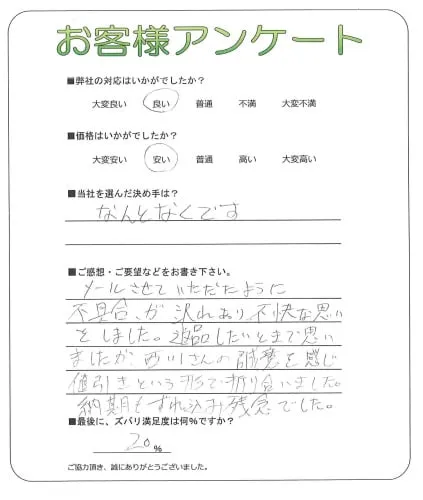 お客様アンケート
■弊社の対応はいかがでしたか？
大変良い 良い 普通 不満 大変不満
■価格はいかがでしたか？
大変安い 安い 普通 高い 大変高い
■当社を選んだ決め手は？
なんとなくです
■ご感想・ご要望などをお書き下さい。
メールさせていただたように
不具合、が 沢れあり、不快な思い
をしました。返品したいとまで思い
ましたが、西川さんの誠意を感じ
値引きという形で折り合いました。
納期もずれ込み残念でした。
■最後に、ズバリ満足度は何％ですか？
20％
ご協力頂き、誠にありがとうございました。